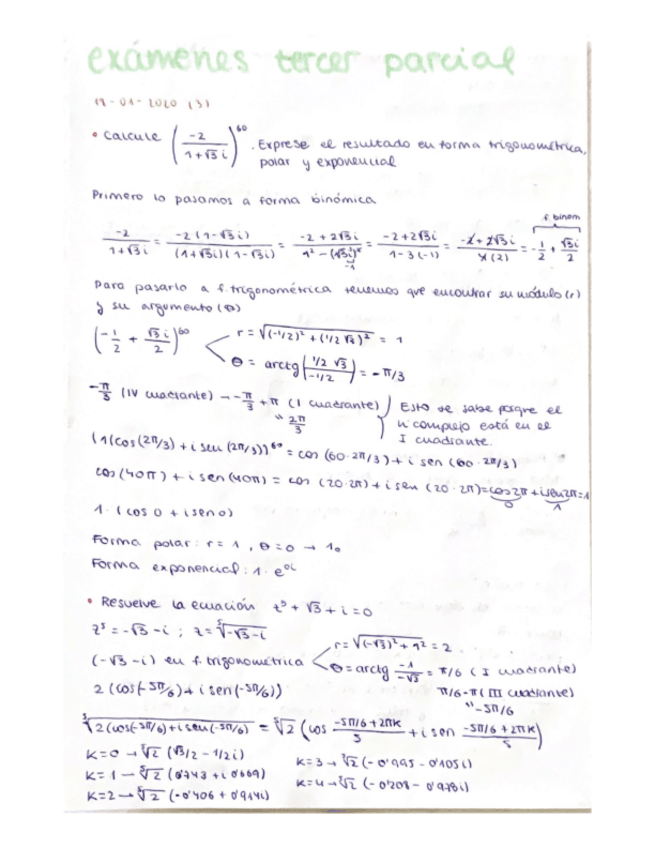 exámenes tercer parcial
17-01-2020 (3)
• Calcule (-2 / 1+√3 i)^60 . Exprese el resultado en forma trigonométrica,
polar y exponencial
Primero lo pasamos a forma binómica
f. binom
-2 / 1+√3i = -2(1-√3i) / (1+√3i)(1-√3i) = -2+2√3i / 1²-(√3i)² = -2+2√3i / 1-3(-1) = -2+2√3i / 4(2) = -1/2 + √3i/2
-1
Para pasarlo a f. trigonométrica tenemos que encontrar su módulo (r)
y su argumento (θ)
(-1/2 + √3i/2)^60 r = √((-1/2)² + (1/2 √3)²) = 1
θ = arctg (1/2 √3 / -1/2) = -π/3
-π/3 (IV cuadrante) → -π/3 + π (I cuadrante) Esto se sabe porque el
" 2π/3 nº complejo está en el
I cuadrante.
(1(cos(2π/3) + i sen(2π/3))^60 = cos(60·2π/3) + i sen(60·2π/3)
cos(40π) + i sen(40π) = cos(20·2π) + i sen(20·2π) = cos2π + isen2π = 1
0 1
1·(cos 0 + i sen 0)
Forma polar: r = 1, θ = 0 → 1₀
Forma exponencial: 1·e^0i
• Resuelve la ecuación z⁵ + √3 + i = 0
z⁵ = -√3 - i ; z = ⁵√-√3-i
r = √(-√3)² + 1² = 2
(-√3 - i) en f. trigonométrica θ = arctg -1/-√3 = π/6 (I cuadrante)
2(cos(-5π/6) + i sen(-5π/6)) π/6 - π (III cuadrante)
" -5π/6
⁵√2(cos(-5π/6) + i sen(-5π/6)) = ⁵√2 (cos -5π/6+2πK / 5 + i sen -5π/6+2πK / 5)
K=0 → ⁵√2 (√3/2 - 1/2i)
K=1 → ⁵√2 (0'743 + i 0'669)
K=2 → ⁵√2 (-0'406 + 0'914i)
K=3 → ⁵√2 (-0'995 - 0'105i)
K=4 → ⁵√2 (-0'208 - 0'978i)